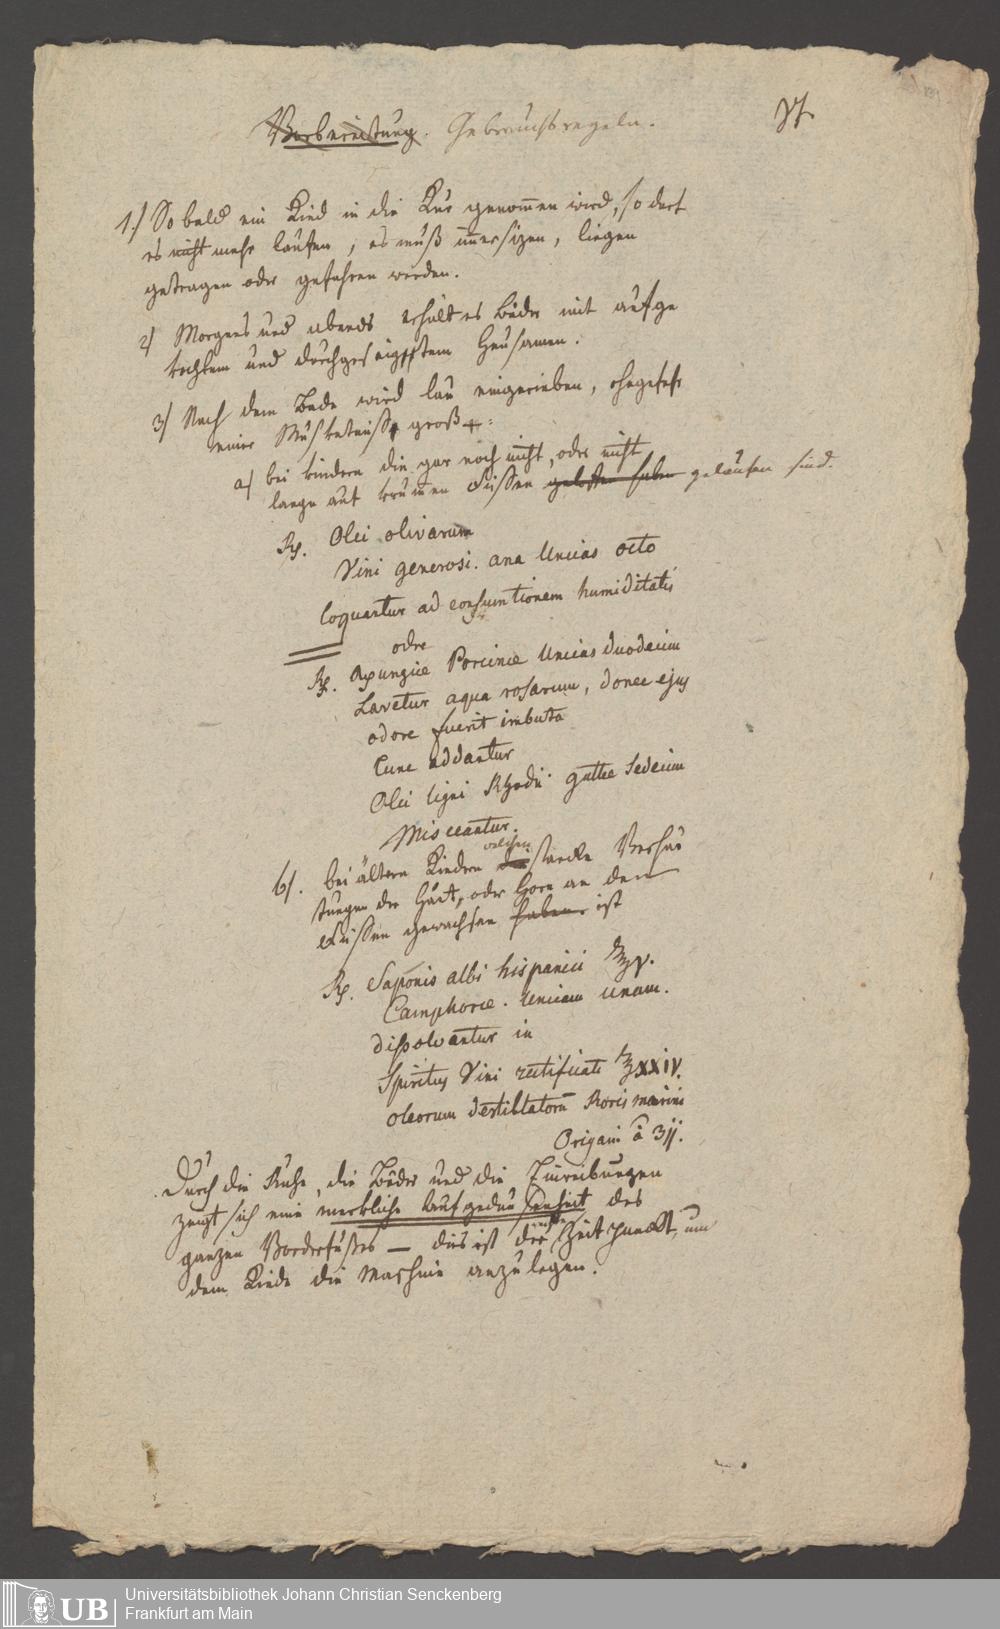 Vorbereitung. Gebrauchsregeln.
1.) So bald ein Kind in die Kur genommen wird, so darf
es nicht mehr laufen, es muß immer sizen, liegen
getragen oder gefahren werden.
2) Morgens und abends erhält es Bäder mit aufge
kochtem und durchgeseigtem Heusamen.
3) Nach dem Bade wird lau eingerieben, ohngefehr
einer Muskatnuß groß:
a) bei kindern die gar noch nicht, oder nicht
lange auf krummen Füssen gelaufen sind.
Rp. Olei olivarum
Vini generosi. ana Uncias octo
Coquantur ad consumtionem humiditatis
oder
Rp. Axungiæ Porcinæ Uncias duodecim
Lavetur aqua rosarum, donec ejus
odore fuerit imbuta
Tunc addantur
Olei ligni Rhodii guttæ sedecim
Misceantur.
b). bei ältern Kindern welchen starke Verhär
tungen der Haut, oder Horn an den
Füssen gewachsen haben ist
Rp. Saponis albi hispanici ℥v.
Camphoræ. Unciam unam.
dissolvantur in
Spiritus Vini rectificati ℥xxiv.
oleorum destillatorum Roris marini
Origani â ʒjj.
Durch die Ruhe, die Bäder und die Einreibungen
zeigt sich eine merkliche Aufgedunsenheit des
ganzen Vorderfußes — dies ist der Zeitpunckt, um
dem Kinde die Maschine anzulegen.
Universitätsbibliothek Johann Christian Senckenberg
Frankfurt am Main
UB